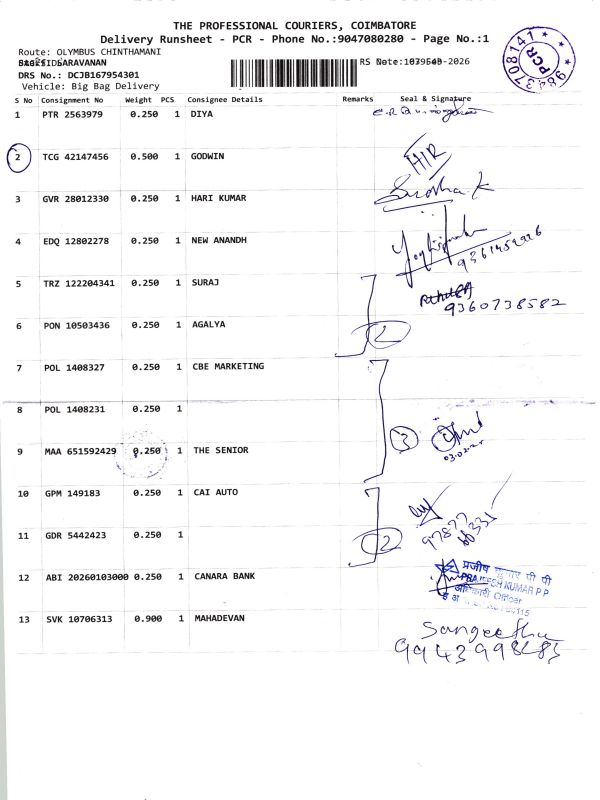 THE PROFESSIONAL COURIERS, COIMBATORE
Delivery Runsheet - PCR - Phone No.:9047080280 - Page No.:1
Route: OLYMBUS CHINTHAMANI
SARAVANAN
DRS No.: DCJB167954301
Vehicle: Big Bag Delivery
984370814 1
PCR
S No Consignment No Weight PCS Consignee Details Remarks Seal & Signature
1 PTR 2563979 0.250 1 DIYA
2 TCG 42147456 0.500 1 GODWIN
HIR
3 GVR 28012330 0.250 1 HARI KUMAR
Sudha.K
4 EDQ 12802278 0.250 1 NEW ANANDH
5 TRZ 122204341 0.250 1 SURAJ
9360738582
6 PON 10503436 0.250 1 AGALYA
2
7 POL 1408327 0.250 1 CBE MARKETING
8 POL 1408231 0.250 1
3
9 MAA 651592429 0.250 1 THE SENIOR
10 GPM 149183 0.250 1 CAI AUTO
11 GDR 5442423 0.250 1
2
12 ABI 20260103000 0.250 1 CANARA BANK
प्रजीष कुमार पी पी
PRAJEESH KUMAR P P
अधिकारी Officer
13 SVK 10706313 0.900 1 MAHADEVAN
Sangeetha